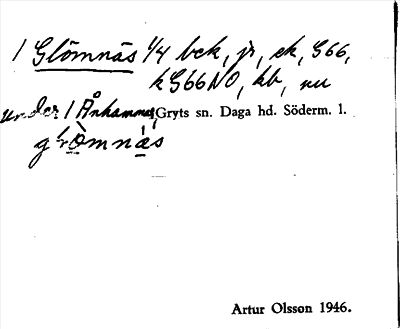 1 Glömnäs 1/4 bck, jr, ek, G66,
k G66NO, hb, nu
under 1 Ånhammar, Gryts sn. Daga hd. Söderm. l.
Artur Olsson 1946.